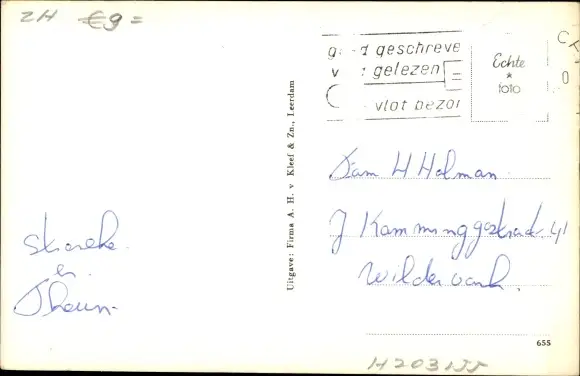 ZH €9=
goed geschreve
v gelezen
vlot bezor
Echte
*
foto
Uitgave: Firma A. H. v Kleef & Zn., Leerdam
Fam H Holman
J Kamminggastraat 41
Wildervank.
en
655
H203155